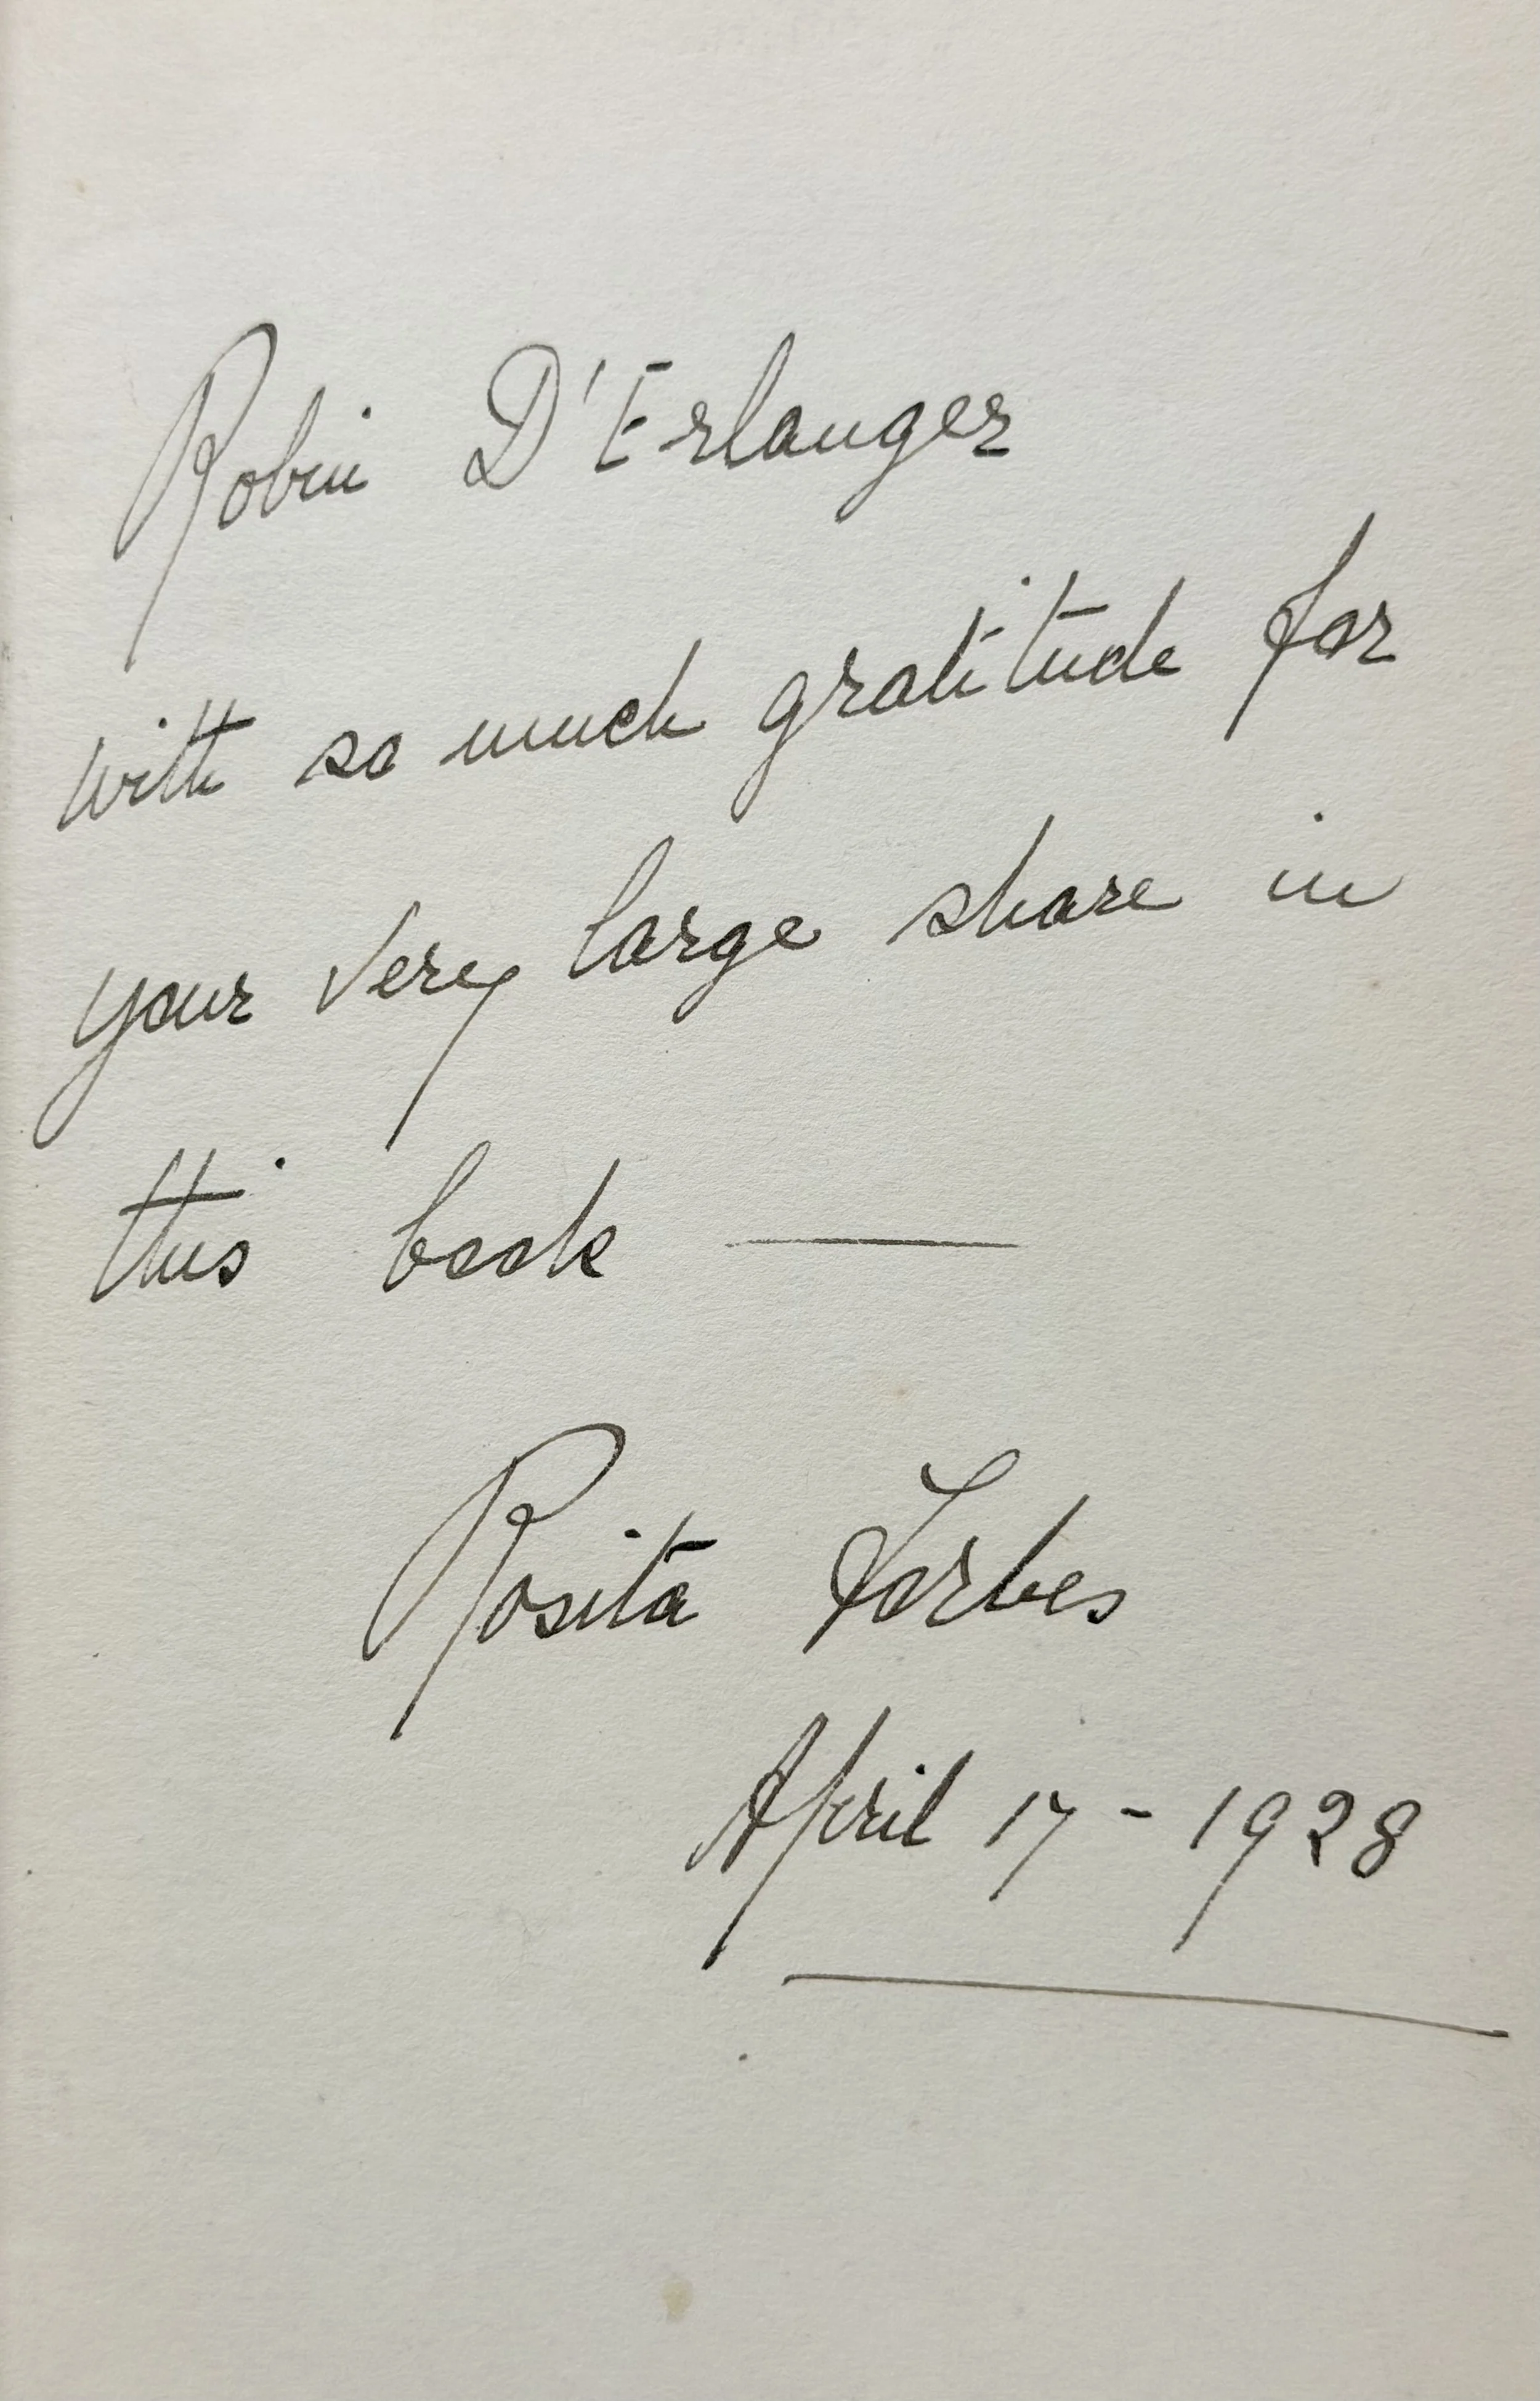 Robin D'Erlanger
with so much gratitude for
your very large share in
this book —
Rosita Forbes
April 17 - 1928